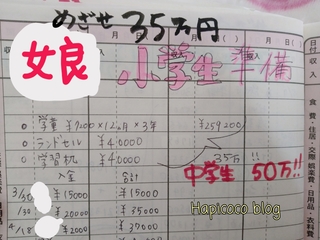 めざせ 35万円
女良
小学生 準備
収入
月 日( )
0 学童 ¥7200×12ヶ月×3年 ¥259200
0 ランドセル ¥40000
0 学習机 ¥40000
35万!!
入金
中学生 50万!!
3/30 ¥15000 ¥15000
1/30 ¥20000 35000
4/18 ¥2000 37000
Hapicoco blog
日付
収入
食費・住居・交際・娯楽費
日用品・衣料費